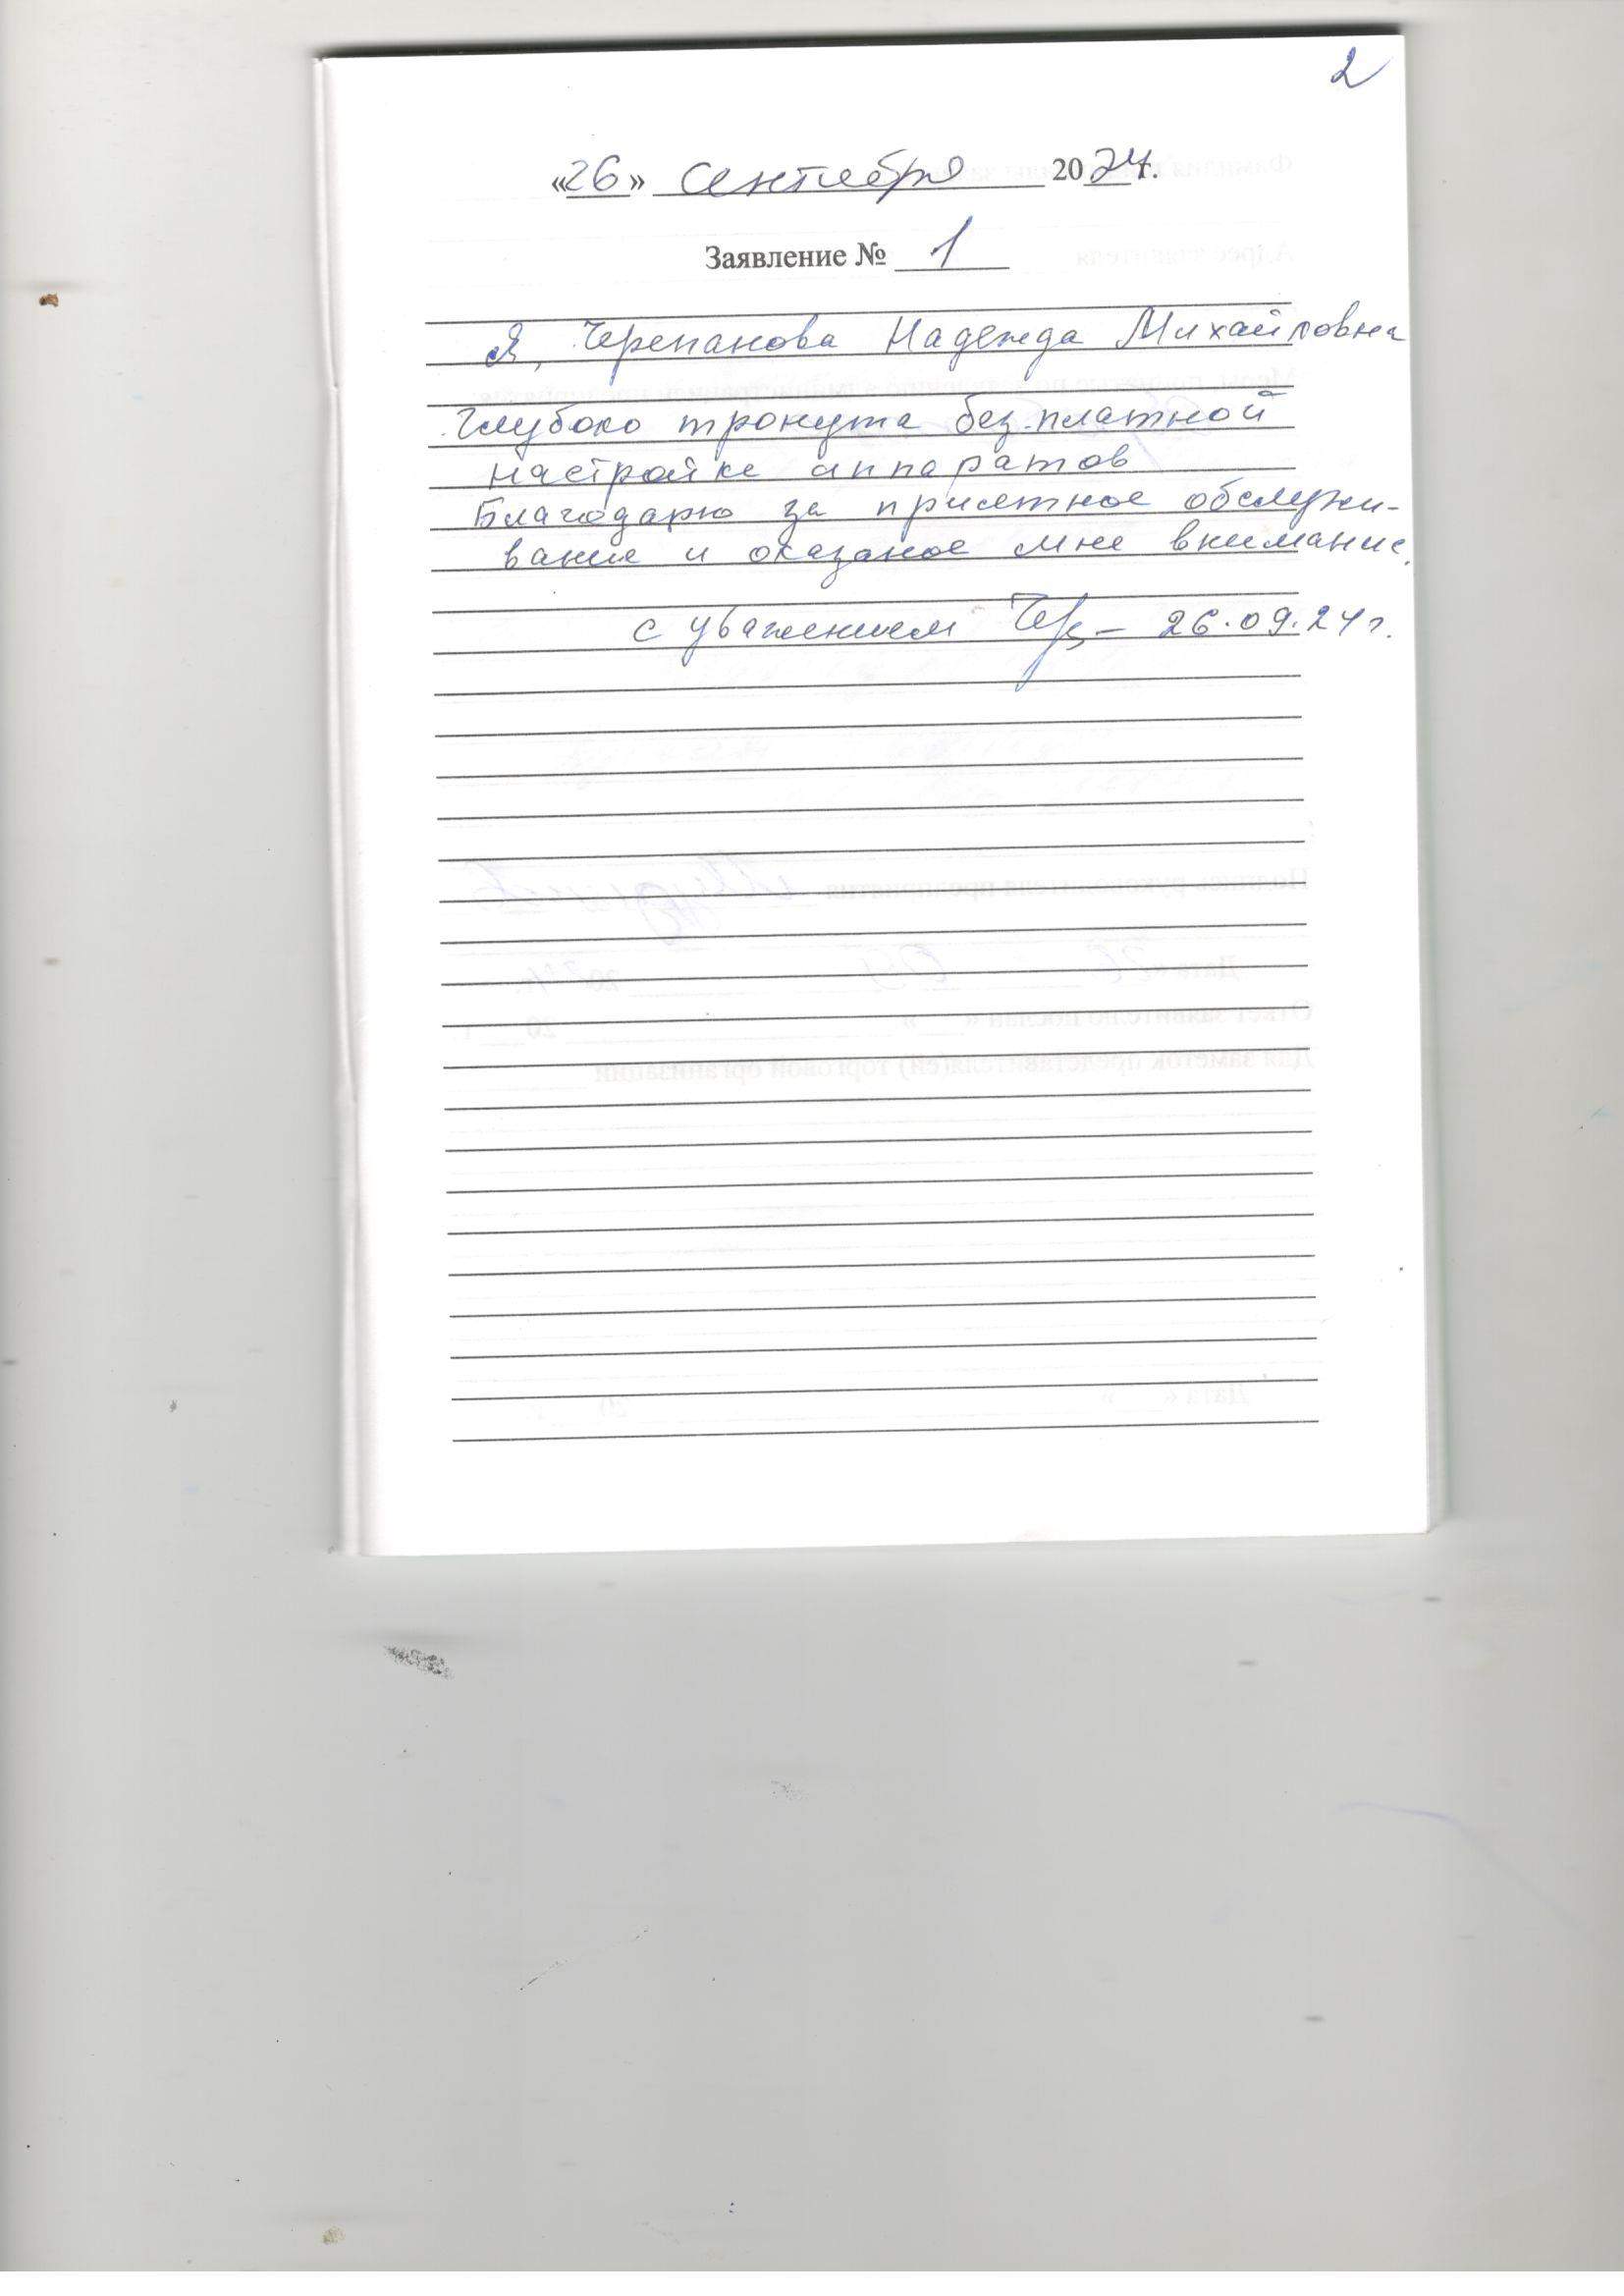 2
«26» сентября 2024г.
Заявление № 1
Я, Черепанова Надежда Михайловна
глубоко тронута без.платной
настройке аппаратов
Благодарю за приятное обслужи-
вание и оказаное мне внимание.
с уважением 26.09.24г.